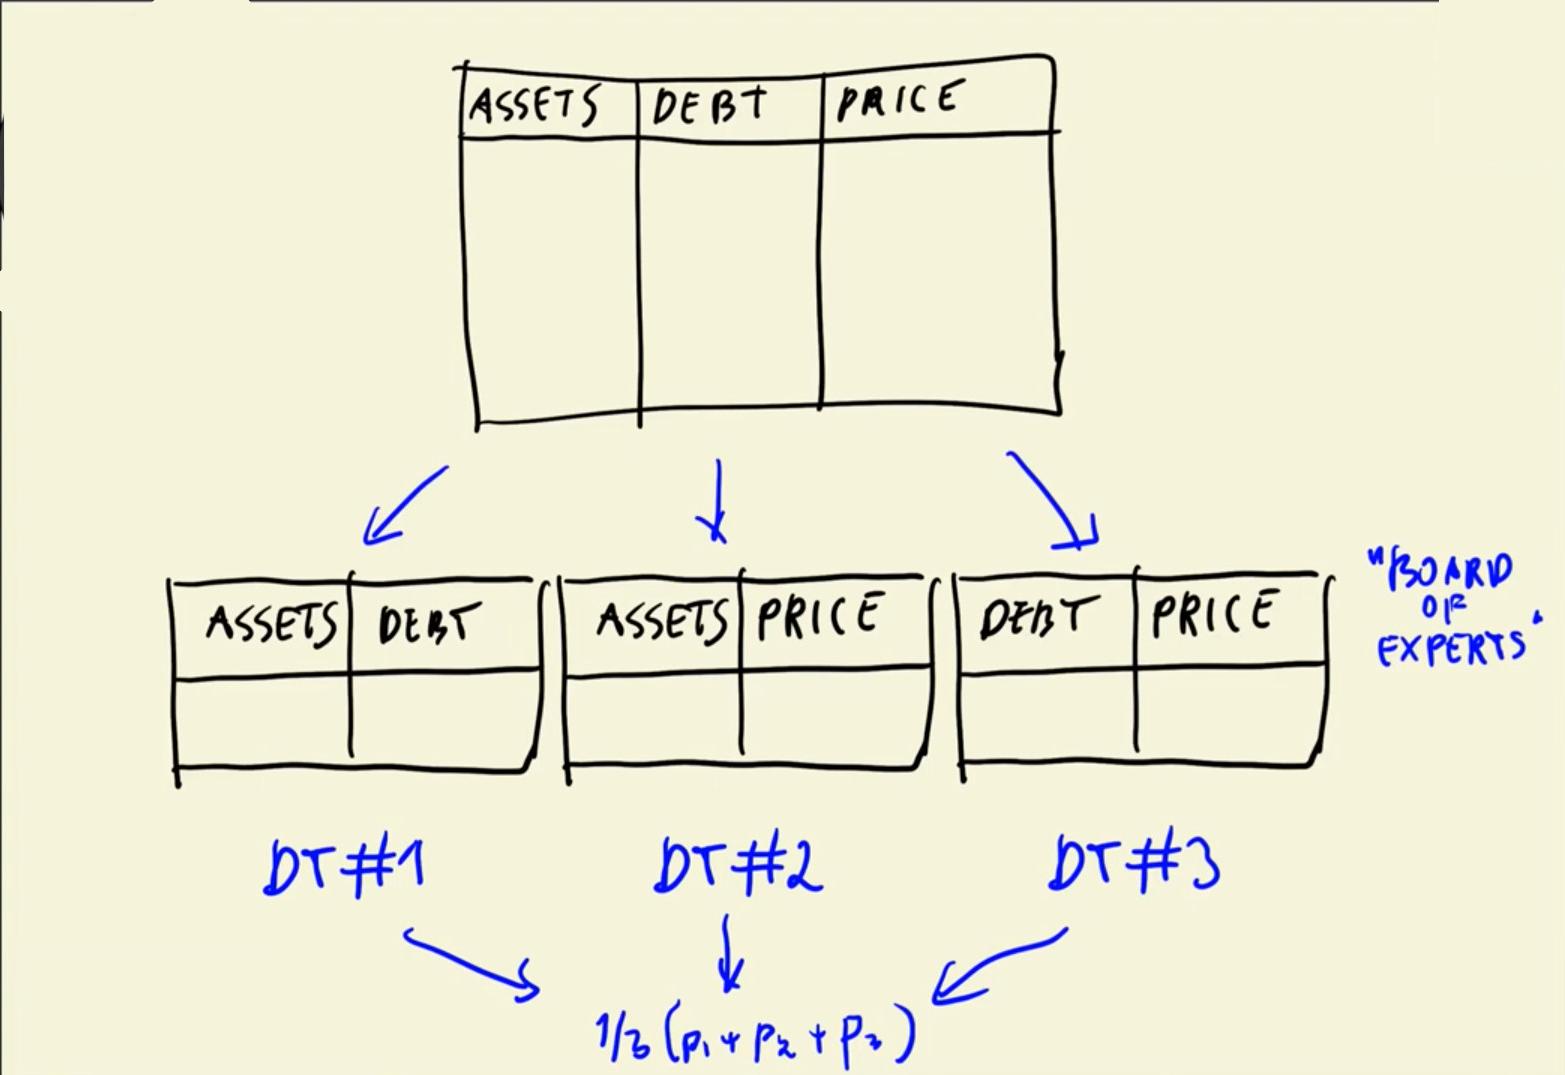 ASSETS DEBT PRICE
ASSETS DEBT ASSETS PRICE DEBT PRICE
"BOARD
OF
EXPERTS"
DT #1 DT #2 DT #3
1/3 (p₁ + p₂ + p₃)